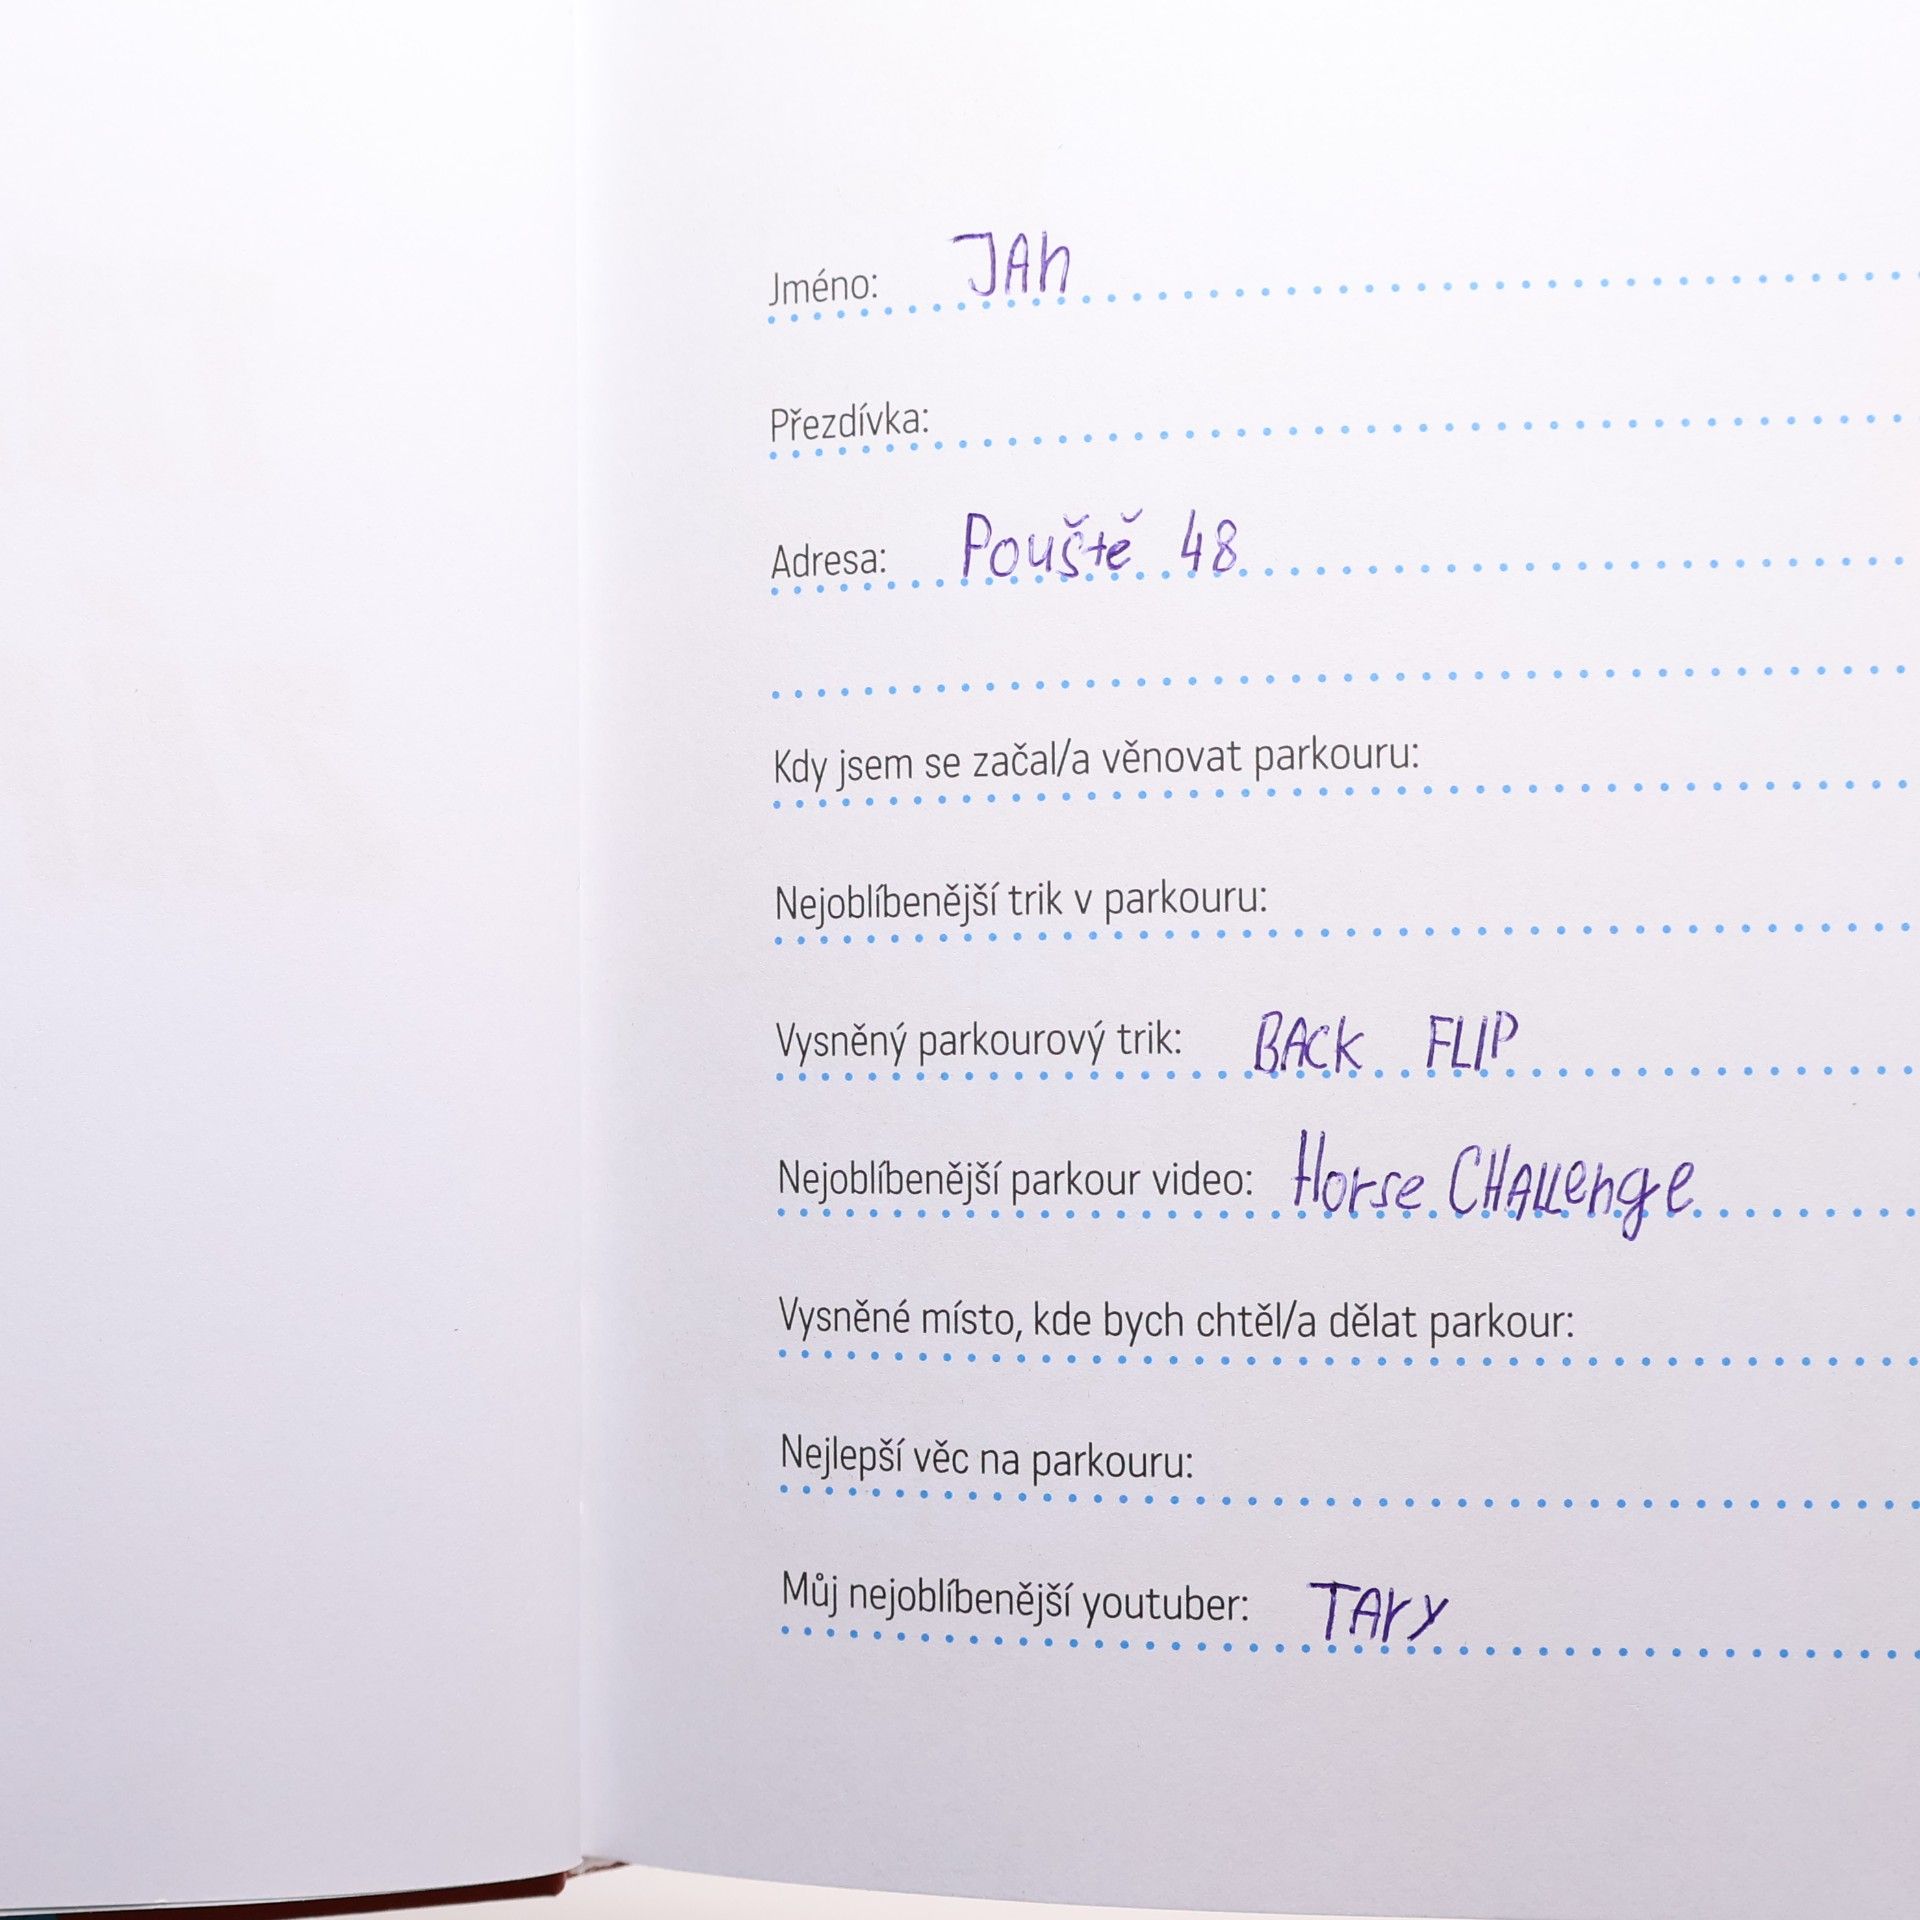 Jméno: JAn
Přezdívka:
Adresa: Pouště 48
Kdy jsem se začal/a věnovat parkouru:
Nejoblíbenější trik v parkouru:
Vysněný parkourový trik: BACK FLIP
Nejoblíbenější parkour video: Horse CHALLenge
Vysněné místo, kde bych chtěl/a dělat parkour:
Nejlepší věc na parkouru:
Můj nejoblíbenější youtuber: TAry